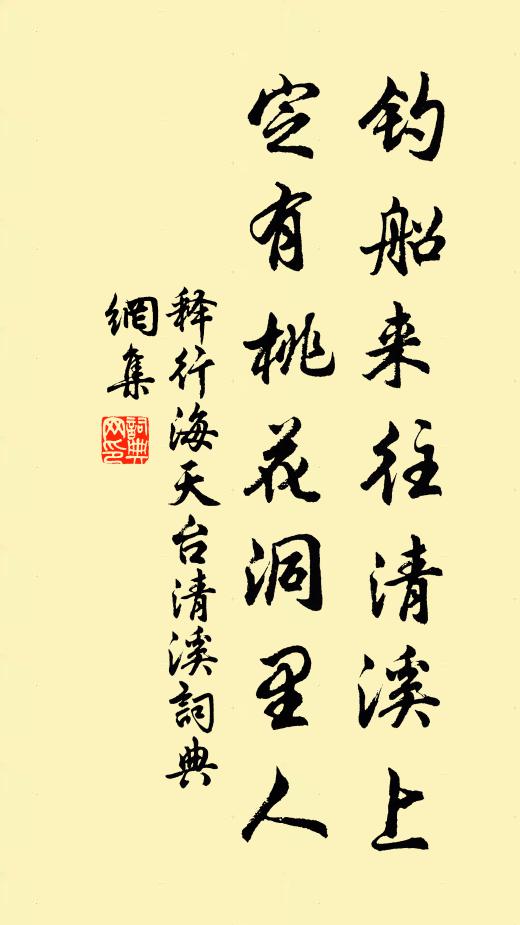 钓船来往清溪上
定有桃花洞里人
释行海天台清溪詞典
網集
詞典
网印